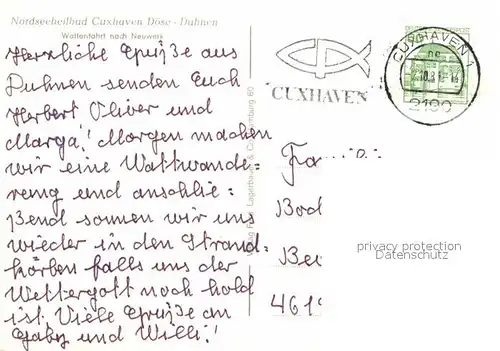 Nordseeheilbad Cuxhaven Döse - Duhnen
Wattenfahrt nach Neuwerk
Herzliche Grüße aus
Duhnen senden Euch
Herbert Oliver und
Marga! Morgen machen
wir eine Wattwande-
rung und anschlie-
ßend sonnen wir uns
wieder in den Strand-
körben falls uns der
Wettergott noch hold
ist. Viele Grüße an
Gaby und Willi!
CUXHAVEN
CUXHAVEN 1
2190
Fa
Bod
Be
461
privacy protection
Datenschutz